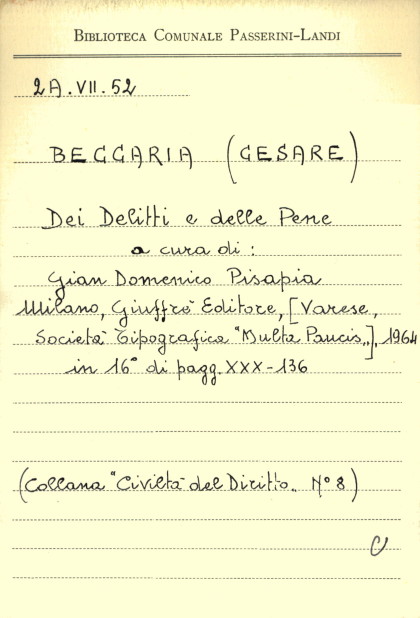 BIBLIOTECA COMUNALE PASSERINI-LANDI
2A.VII.52
BECCARIA (CESARE)
Dei Delitti e delle Pene
a cura di:
Gian Domenico Pisapia
Milano, Giuffrè Editore, [Varese,
Società Tipografica "Multa Paucis„], 1964
in 16° di pagg. XXX-136
(Collana "Civiltà del Diritto„ N° 8)
C